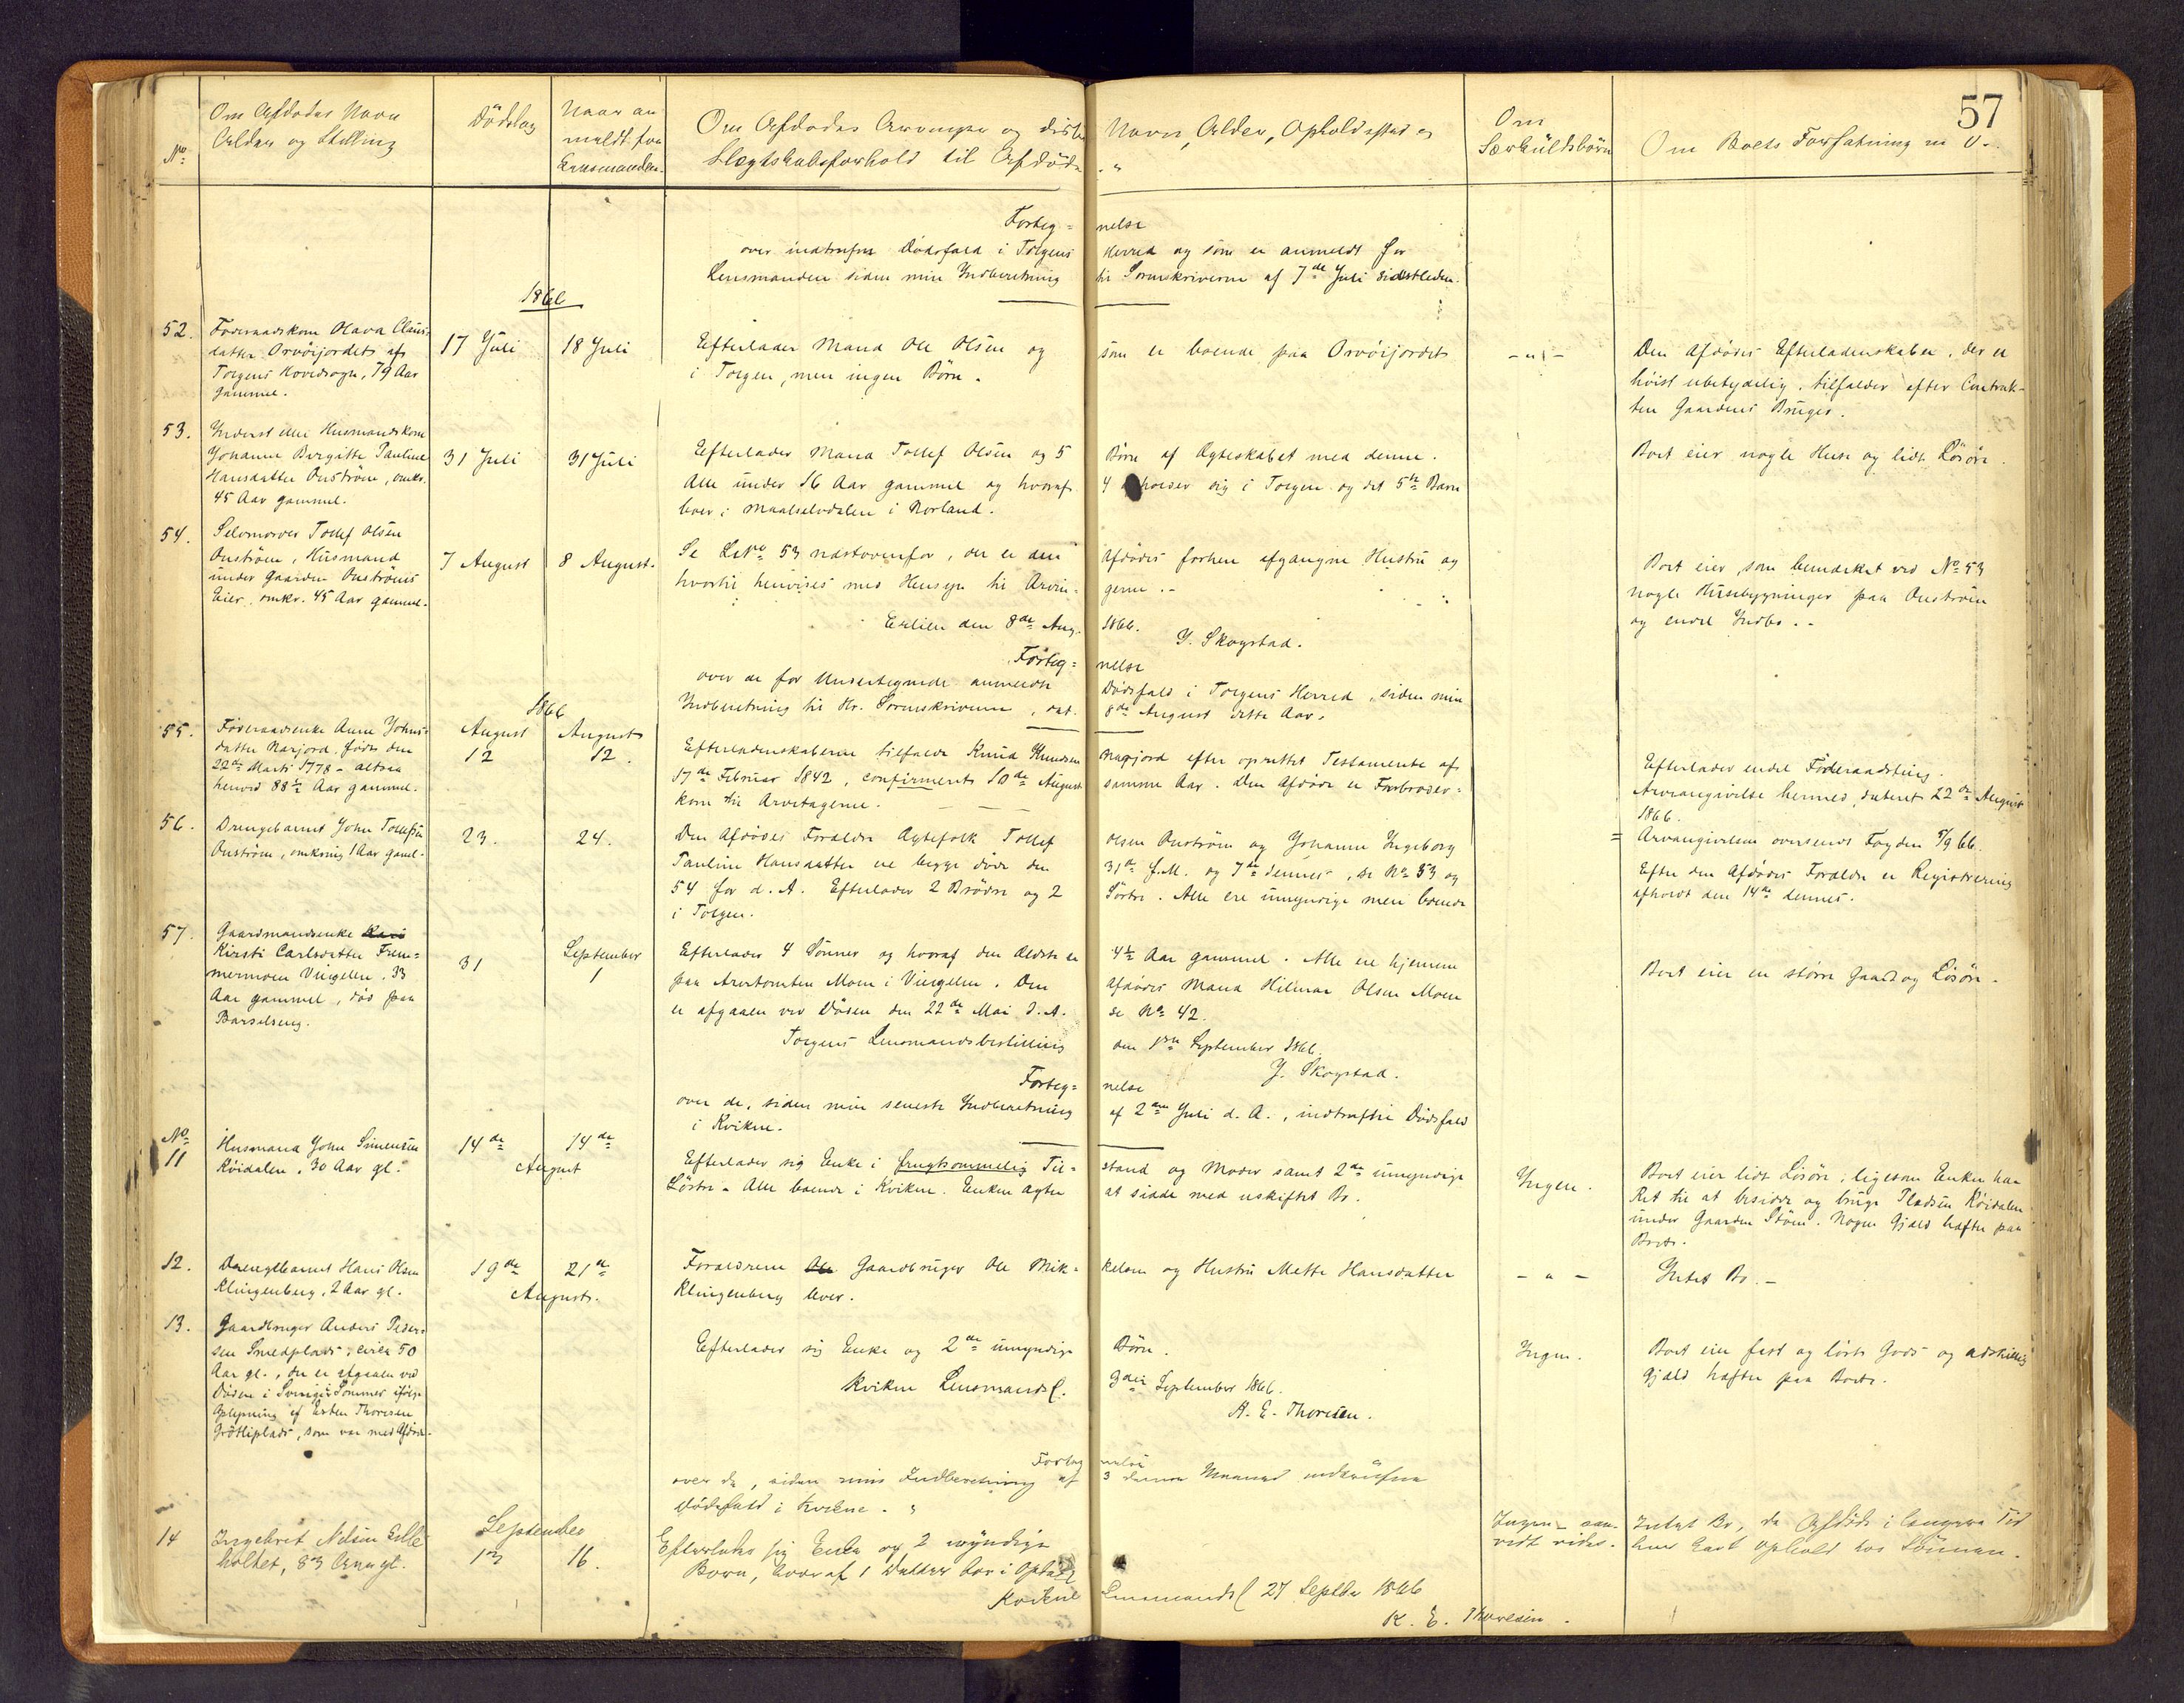 57
No
Om Afdødes Navn
Alder og Stilling
Dödsdag
Naar an
meldt for
Lensmanden.
Om Afdødes Arvinger og disses Navn, Alder, Opholdssted og
Slægtskabsforhold til Afdöde
Om
Særkuldsbörn
Om Boets Forfatning m. V.
Forteg= nelse
over indtrufne Dødsfald i Tolgens Herred og som er anmeldt for
Lensmanden siden min Indberetning til Sorenskriveren af 7de Juli sidstleden.
1866
52.
Föderaadskone Olava Claus=
datter Orvöijordet af
Tolgens Hovedsogn, 79 Aar
gammel.
17 Juli
18 Juli
Efterlader Mand Ole Olsen og som er boende paa Orvöijordet
i Tolgen, men ingen Börn.
- " -
Den Afdödes Efterladenskaber, der er
höist ubetydelig, tilfalder efter Contrak-
ten Gaardens Bruger.
53.
Inderst eller Husmandskone
Johanne Birgitte Pauline
Hansdatter Onströen, omkr.
45 Aar gammel.
31 Juli
31 Juli
Efterlader Mand Tollef Olsen og 5 Börn af Ægteskabet med denne.
Alle under 16 Aar gammel og hvoraf 4 opholder sig i Tolgen og det 5te Barn
boer i Maalselvdalen i Norland.
Boet eier nogle Huse og lidt Lösöre.
54.
Selvmorder Tollef Olsen
Onströen, Husmand
under Gaarden Onströens
Eier, omkr. 45 Aar gammel.
7 August
8 August.
Se LNo 53 næstovenfor, der er den Afdödes forhen afgangne Hustru og
hvortil henvises med Hensyn til Arvin= gerne. -
Boet eier, som bemærket ved No 53
nogle Husebygninger paa Onströen
og endel Indbo. -
Erlien den 8de Aug. 1866.
J. Skogstad.
Forteg= nelse
over de for Undertegnede anmeldte Dödsfald i Tolgens Herred, siden min
Indberetning til Hr. Sorenskriveren, dat. 8de August dette Aar.
1866
55.
Föderaadsenke Anne Johns=
datter Narjord, födt den
22de Marts 1778 - altsaa
henved 88½ Aar gammel.
August
12
August
12.
Efterladenskaberne tilfalde Knud Knudsen Narjord efter oprettet Testamente af
17de Februar 1842, confirmeret 10de August samme Aar. Den Afdöde er Farbroder=
kone til Arvetageren.
Efterlader endel Föderaadsting.
Arveangivelse hermed, dateret 22de August
1866.
= Arveangivelsen oversendt Fogden 5/9 66.
56.
Drengebarnet John Tollefsen
Onströen, omkring 1 Aar gaml.
23.
24.
Den Afdödes Forældre Ægtefolk Tollef Olsen Onströen og Johanne Ingeborg
Pauline Hansdatter ere begge döde den 31te f.M. og 7de dennes, se No 53 og
54 for d. A. Efterlader 2 Brödre og 2 Söstre. Alle ere umyndige men boende
i Tolgen.
Efter den Afdödes Forældre er Registrering
afholdt den 14de dennes.
57.
Gaardmandsenke Kari
Kirsti Carlsdatter Frem=
mermoen Vingelen, 33
Aar gammel, död paa
Barselseng.
31
September
1
Efterlader 4 Sönner og hvoraf den Ældste er 4½ Aar gammel. Alle ere hjemme
paa Arvetomten Moen i Vingelen. Den afdödes Mand Hilmar Olsen Moen
er afgaaen ved Döden den 22de Mai d. A. se No 42.
Boet eier en större Gaard og Lösöre.
Tolgens Lensmandsbestilling den 1ste September 1866.
J. Skogstad.
Forteg= nelse
over de, siden min seneste Indberetning af 2den Juli d. A., indtrufne Dödsfald
i Kvikne.
No
11
Husmand John Simensen
Röidalen, 30 Aar gl.
14de
14de
August
Efterlader sig Enke i frugtsommelig Til= stand og Moder samt 2de umyndige
Söstre - Alle boende i Kvikne. Enken agter at sidde med uskiftet Bo.
Ingen.
Boet eier lidt Lösöre, ligesom Enken har
Ret til at besidde og bruge Pladsen Röidalen
under Gaarden Stöen. Nogen Gjæld hæfter paa
Boet.
12.
Drengebarnet Hans Olsen
Klingenberg, 2 Aar gl.
19de
21de
August.
Forældrene Ole Gaardbruger Ole Mik= kelsen og Hustru Mette Hansdatter
Klingenberg lever.
- " -
Intet Bo. -
13.
Gaardbruger Anders Peder=
sen Smedplads, circa 50
Aar gl., der er afgaaen ved
Döden i Sverige i Sommer ifölge
Oplysning af Esten Thoresen
Gröttliplads, som var med Afdöde.
Efterlader sig Enke og 2de umyndige Börn.
Ingen.
Boet eier fast og löst Gods og adskillig
Gjæld hæfter paa Boet.
Kvikne Lensmandsl. 3die September 1866.
A. E. Thoresen.
Forteg nelse
over de, siden min Indberetning af 3 denne Maaned indtrufne
Dödsfald i Kvikne.
14
Ingebret Nilsen Eille
holtet, 83 Aar gl.
September
13
16.
Efterlader sig Enke og 2 myndige
Børn, hvoraf 1 Datter bor i Opdal
Ingen - saa-
vidt vides.
Intet Bo, da Afdöde i længere Tid
har havt Ophold hos Sönnen.
Kvikne Lensmandsl 27 Septbr 1866
K. E. Thoresen.